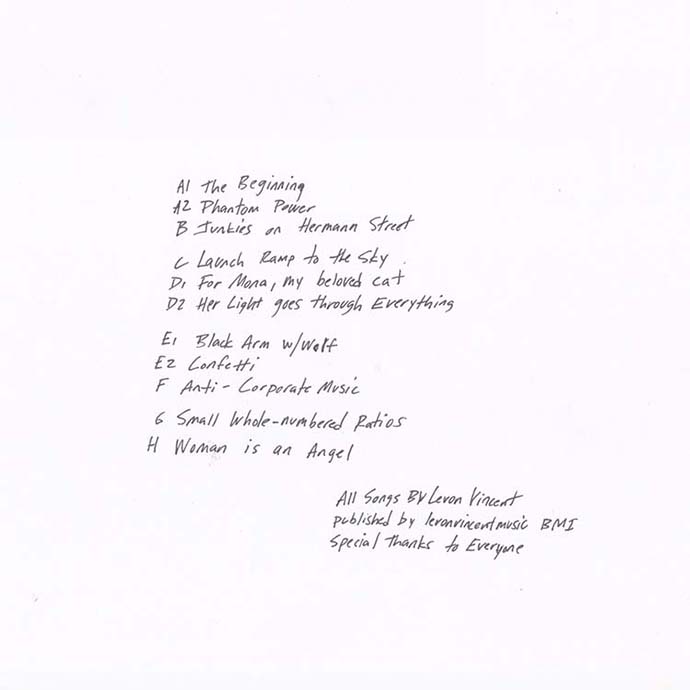 A1 The Beginning
A2 Phantom Power
B Junkies on Hermann Street
C Launch Ramp to the Sky
D1 For Mona, my beloved cat
D2 Her Light goes through Everything
E1 Black Arm w/Wolf
E2 Confetti
F Anti-Corporate Music
G Small Whole-numbered Ratios
H Woman is an Angel
All Songs By Levon Vincent
published by levonvincentmusic BMI
Special Thanks to Everyone